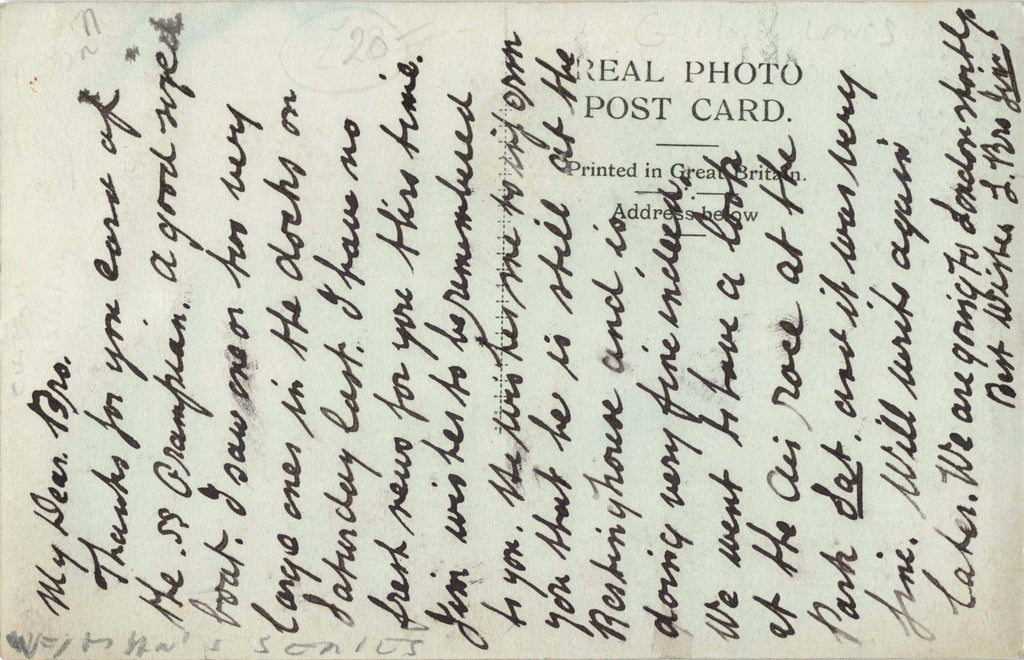 My Dear. Bro.
Thanks for your card of
the. SS Grampian. A good sized
boat. I saw one or two very
large ones in the docks on
Saturday last. I have no
fresh news for you this time.
Jim wishes to be remembered
to you. He wishes me to inform
you that he is still at the
Resting house and is
doing very fine indeed.
We went to have a look
at the Air race at the
Park Sat. and it was very
fine. Will write again
later. We are going to London shortly.
Best Wishes L. Bro Jim
REAL PHOTO
POST CARD.
Printed in Great Britain.
Address below
20
SERIES